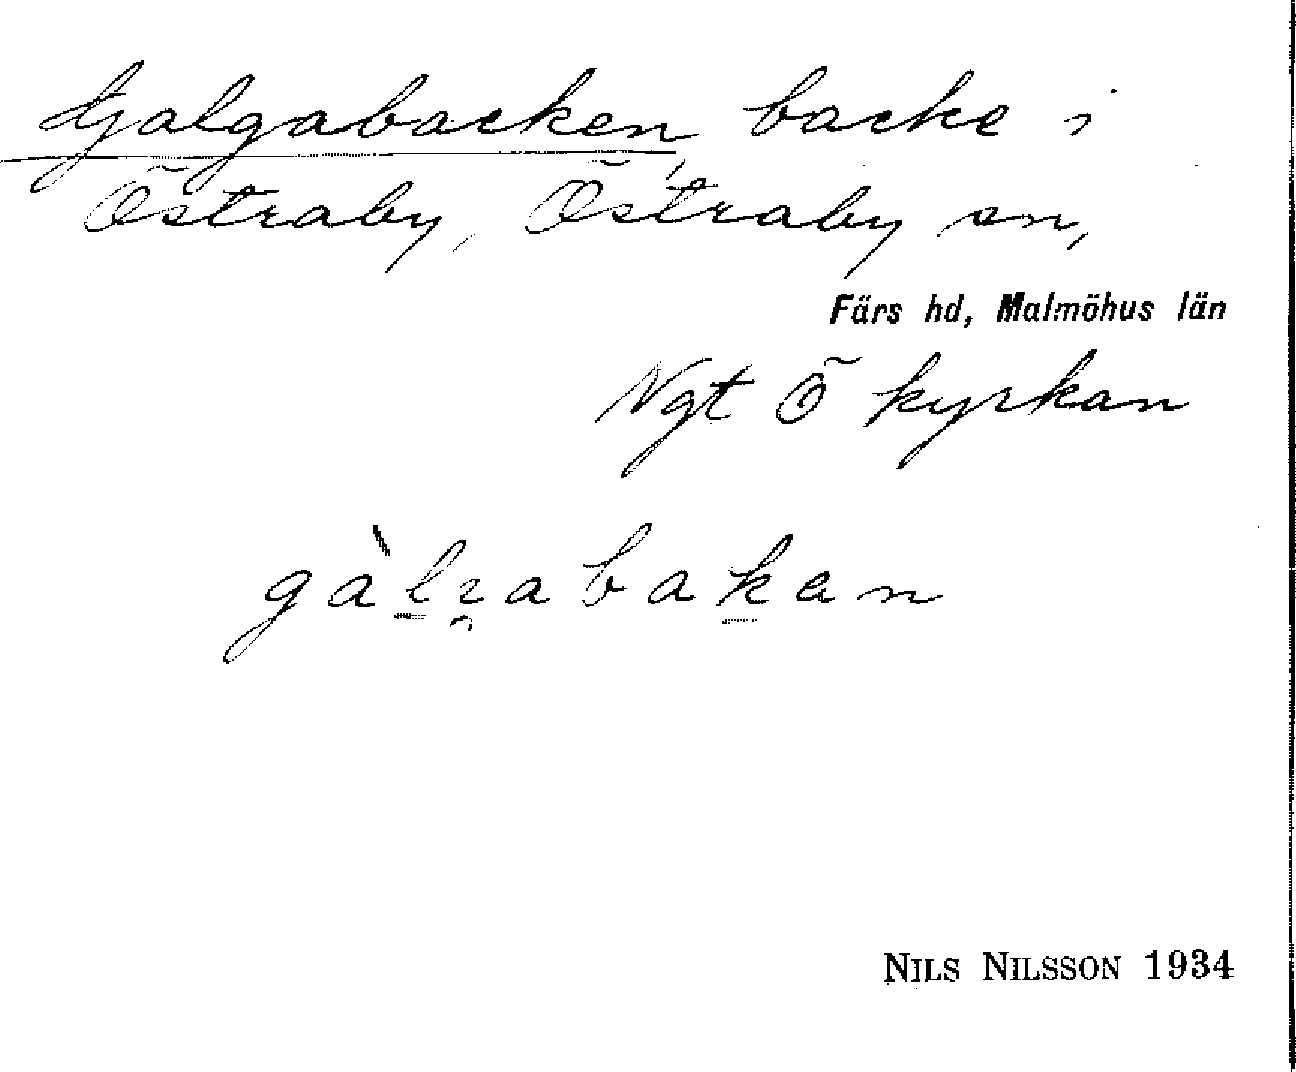 Galgabacken, backe i
Östraby, Östraby sn,
Färs hd, Malmöhus län
Ngt Ö kyrkan
NILS NILSSON 1934